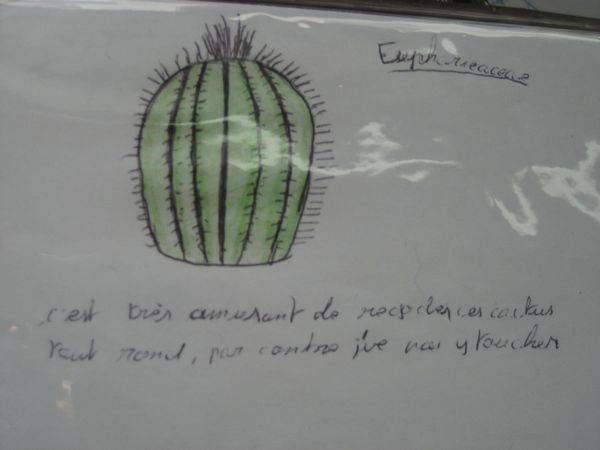 Euphorieaceae
c'est très amusant de regarder ces cactus
tout rond, par contre j've pas y toucher